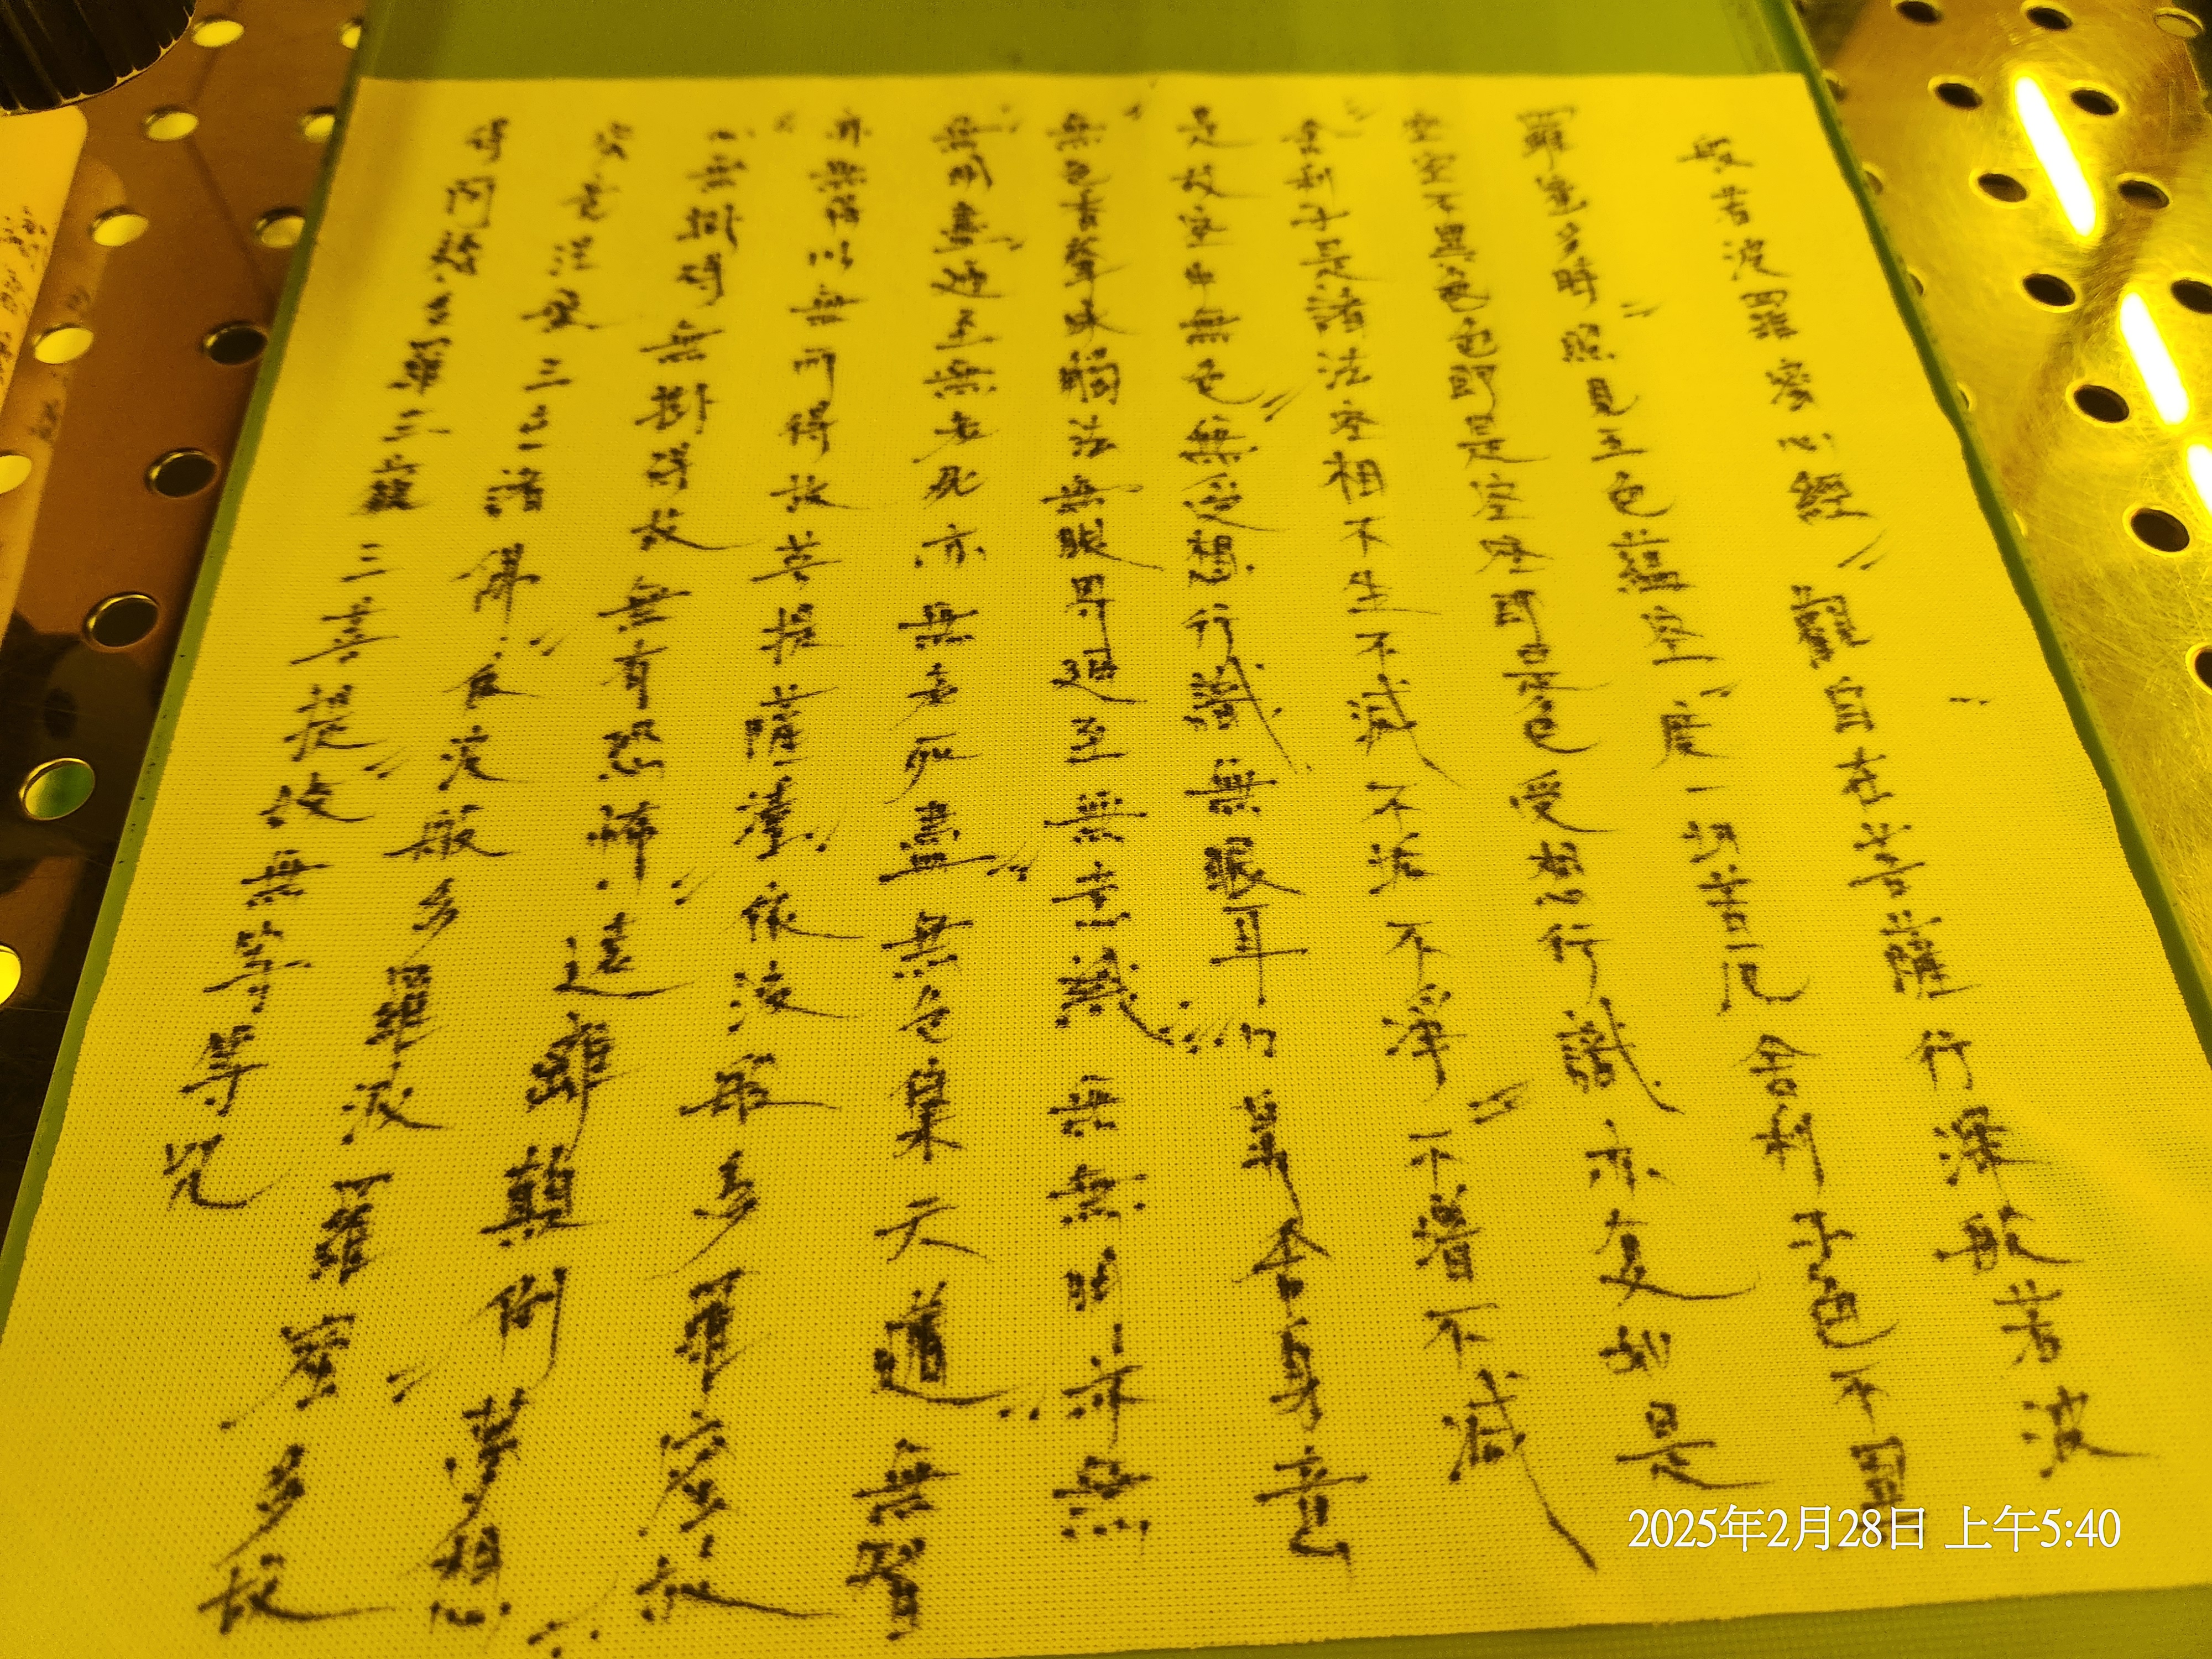 般若波羅蜜心經 觀自在菩薩行深般若波
羅蜜多時照見五色蘊空度一切苦厄舍利子色不異
空空不異色色即是空空即是色受想行識亦复如是
舍利子是諸法空相不生不滅不垢不淨不增不減
是故空中無色無受想行識無眼耳鼻舌身意
無色香聲味觸法無眼界廻至無意識無無明亦無
無明盡廻至無老死亦無老死盡無苦集天道無智
亦無得以無所得故菩提薩埵依波般多羅蜜故
心無掛碍無掛碍故無有恐怖遠離顛倒夢想
究竟涅槃三世諸佛依波般多羅波羅蜜多故
得阿三藐三菩提故無等等咒
2025年2月28日 上午5:40